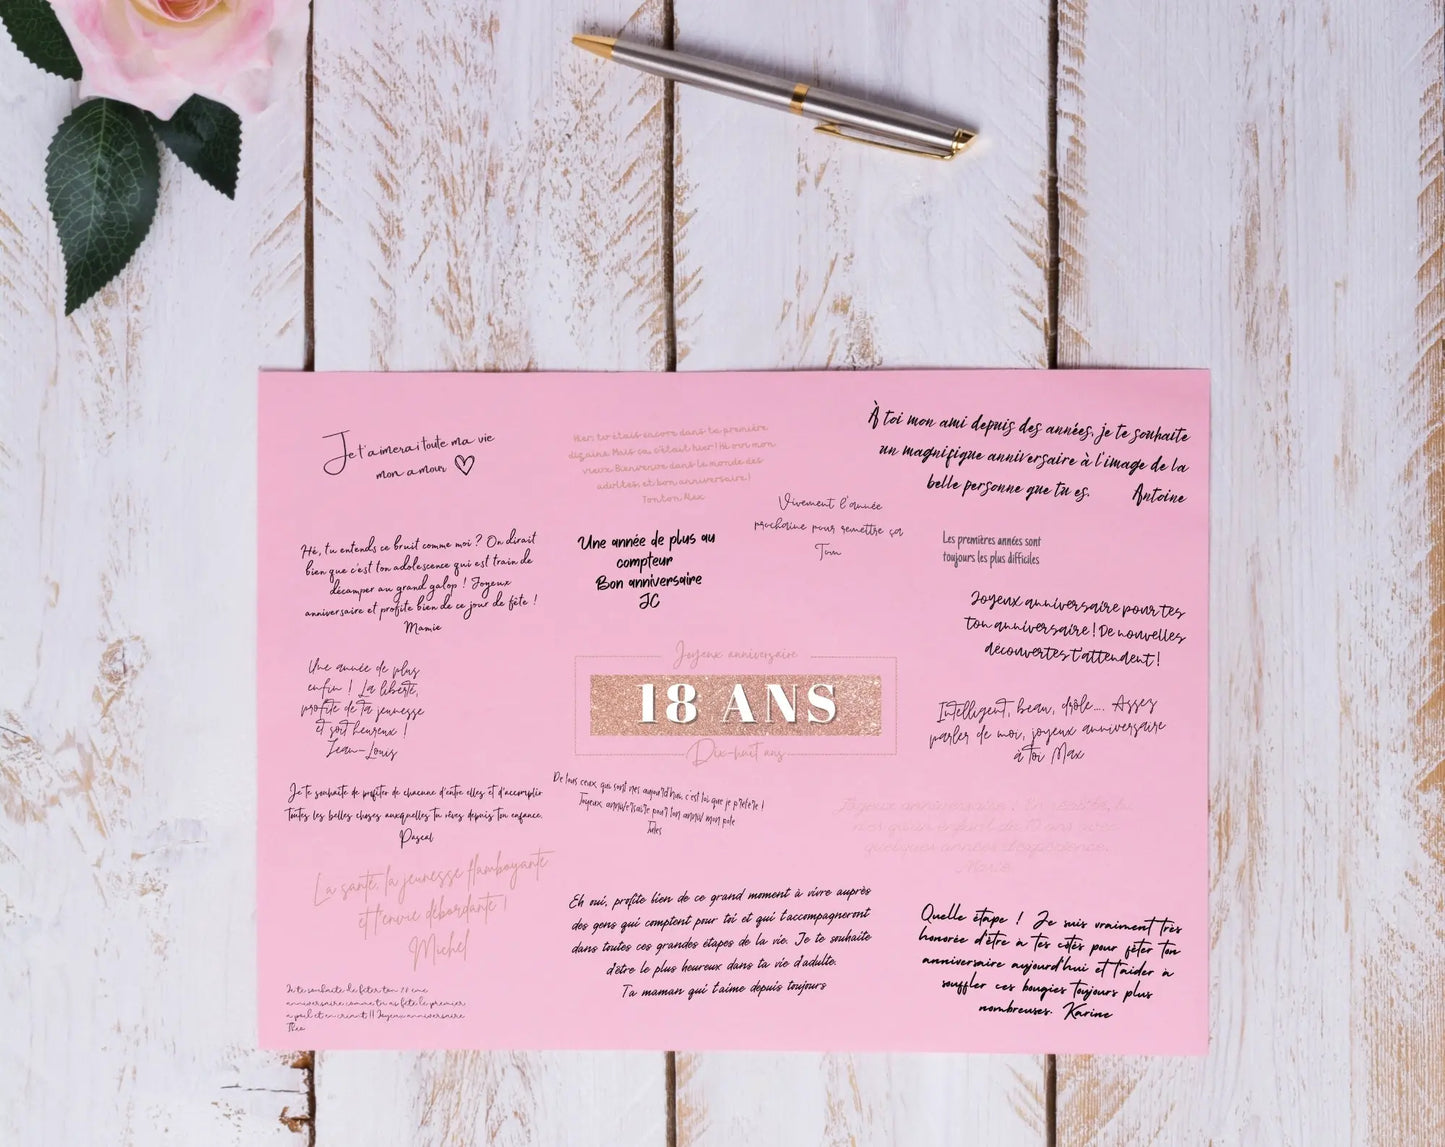 Je t'aimerai toute ma vie
mon amour
Hier, tu étais encore dans ta première
dizaine. Mais ça, c'était hier! Hé oui mon
vieux. Bienvenue dans le monde des
adultes, et bon anniversaire!
Tonton Alex
À toi mon ami depuis des années, je te souhaite
un magnifique anniversaire à l'image de la
belle personne que tu es.
Antoine
Vivement l'année
prochaine pour remettre ça
Tom
Hé, tu entends ce bruit comme moi ? On dirait
bien que c'est ton adolescence qui est train de
décamper au grand galop ! Joyeux
anniversaire et profite bien de ce jour de fête !
Mamie
Une année de plus au
compteur
Bon anniversaire
JC
Les premières années sont
toujours les plus difficiles
Joyeux anniversaire pour tes
ton anniversaire ! De nouvelles
découvertes t'attendent !
Une année de plus
enfin ! La liberté,
profite de ta jeunesse
et soit heureux !
Jean-Louis
Joyeux anniversaire
18 ANS
Dix-huit ans
Intelligent, beau, drôle.... Assez
parler de moi, joyeux anniversaire
à toi Max
Je te souhaite de profiter de chacune d'entre elles et d'accomplir
toutes les belles choses auxquelles tu rêves depuis ton enfance.
Pascal
De tous ceux qui sont nés aujourd'hui, c'est toi que je préfère !
Joyeux anniversaire pour ton anniv mon pote
Jules
Joyeux anniversaire !
quelques années d'expérience.
Marie
La santé, la jeunesse flamboyante
et l'envie débordante !
Michel
Eh oui, profite bien de ce grand moment à vivre auprès
des gens qui comptent pour toi et qui t'accompagneront
dans toutes ces grandes étapes de la vie. Je te souhaite
d'être le plus heureux dans ta vie d'adulte.
Ta maman qui t'aime depuis toujours
Quelle étape ! Je suis vraiment très
honorée d'être à tes côtés pour fêter ton
anniversaire aujourd'hui et t'aider à
souffler ces bougies toujours plus
nombreuses. Karine
Je te souhaite de fêter ton
anniversaire comme tu as fêté le premier
à poil et en criant !! Joyeux anniversaire
Théo